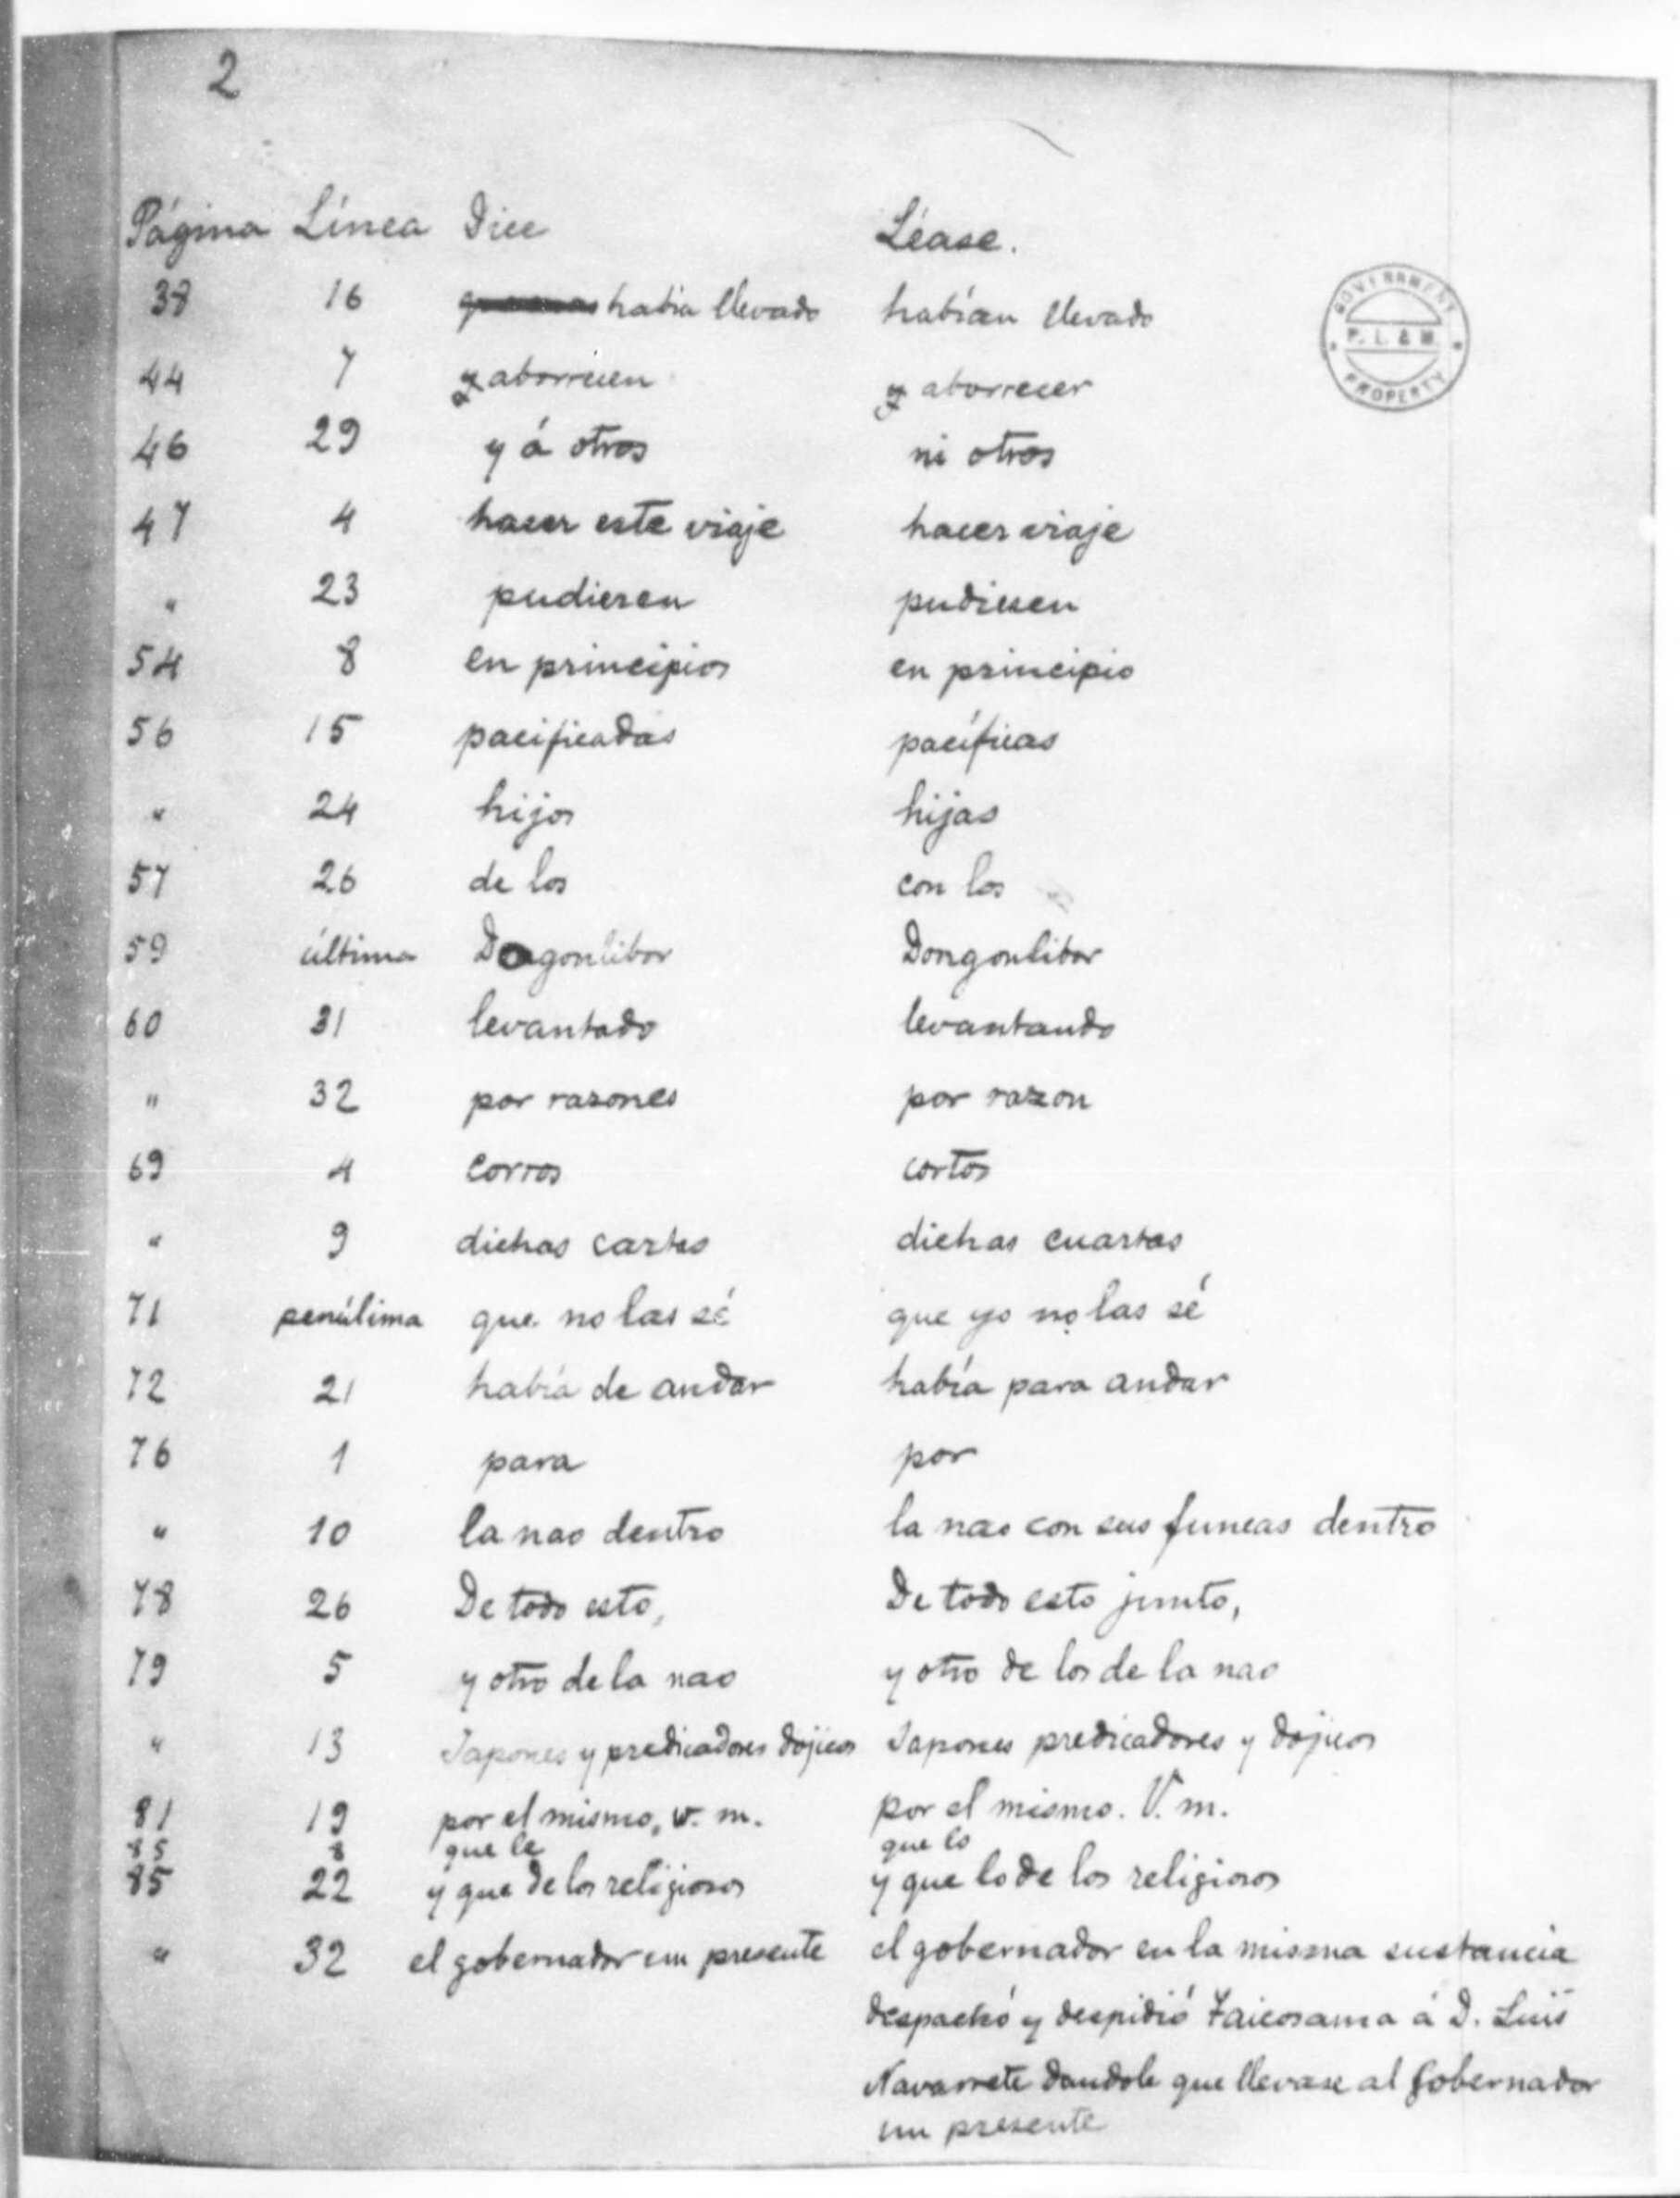 2
Página Línea Dice Léase.
38 16 habia llevado habían llevado
44 7 y aborrecen y aborrecer
46 29 y á otros ni otros
47 4 hacer este viaje hacer viaje
" 23 pudieren pudiesen
54 8 en principios en principio
56 15 pacificadas pacíficas
" 24 hijos hijas
57 26 de los con los
59 última Dagonlibor Dongonlibor
60 31 levantado levantando
" 32 por razones por razon
69 4 corros cortos
" 9 dichas cartas dichas cuartas
71 penúlima que no las sé que yo no las sé
72 21 había de andar había para andar
76 1 para por
" 10 la nao dentro la nao con sus funeas dentro
78 26 De todo esto, De todo esto junto,
79 5 y otro de la nao y otro de los de la nao
" 13 Japones y predicadores dojicos Japones predicadores y dojicos
81 19 por el mismo, v. m. por el mismo. V. m.
85 8 que le que lo
85 22 y que de los religiosos y que lo de los religiosos
" 32 el gobernador un presente el gobernador en la misma sustancia
despachó y despidió Taicosama á D. Luis
Navarrete dandole que llevase al gobernador
un presente
GOVERNMENT
P. L. & M.
PROPERTY